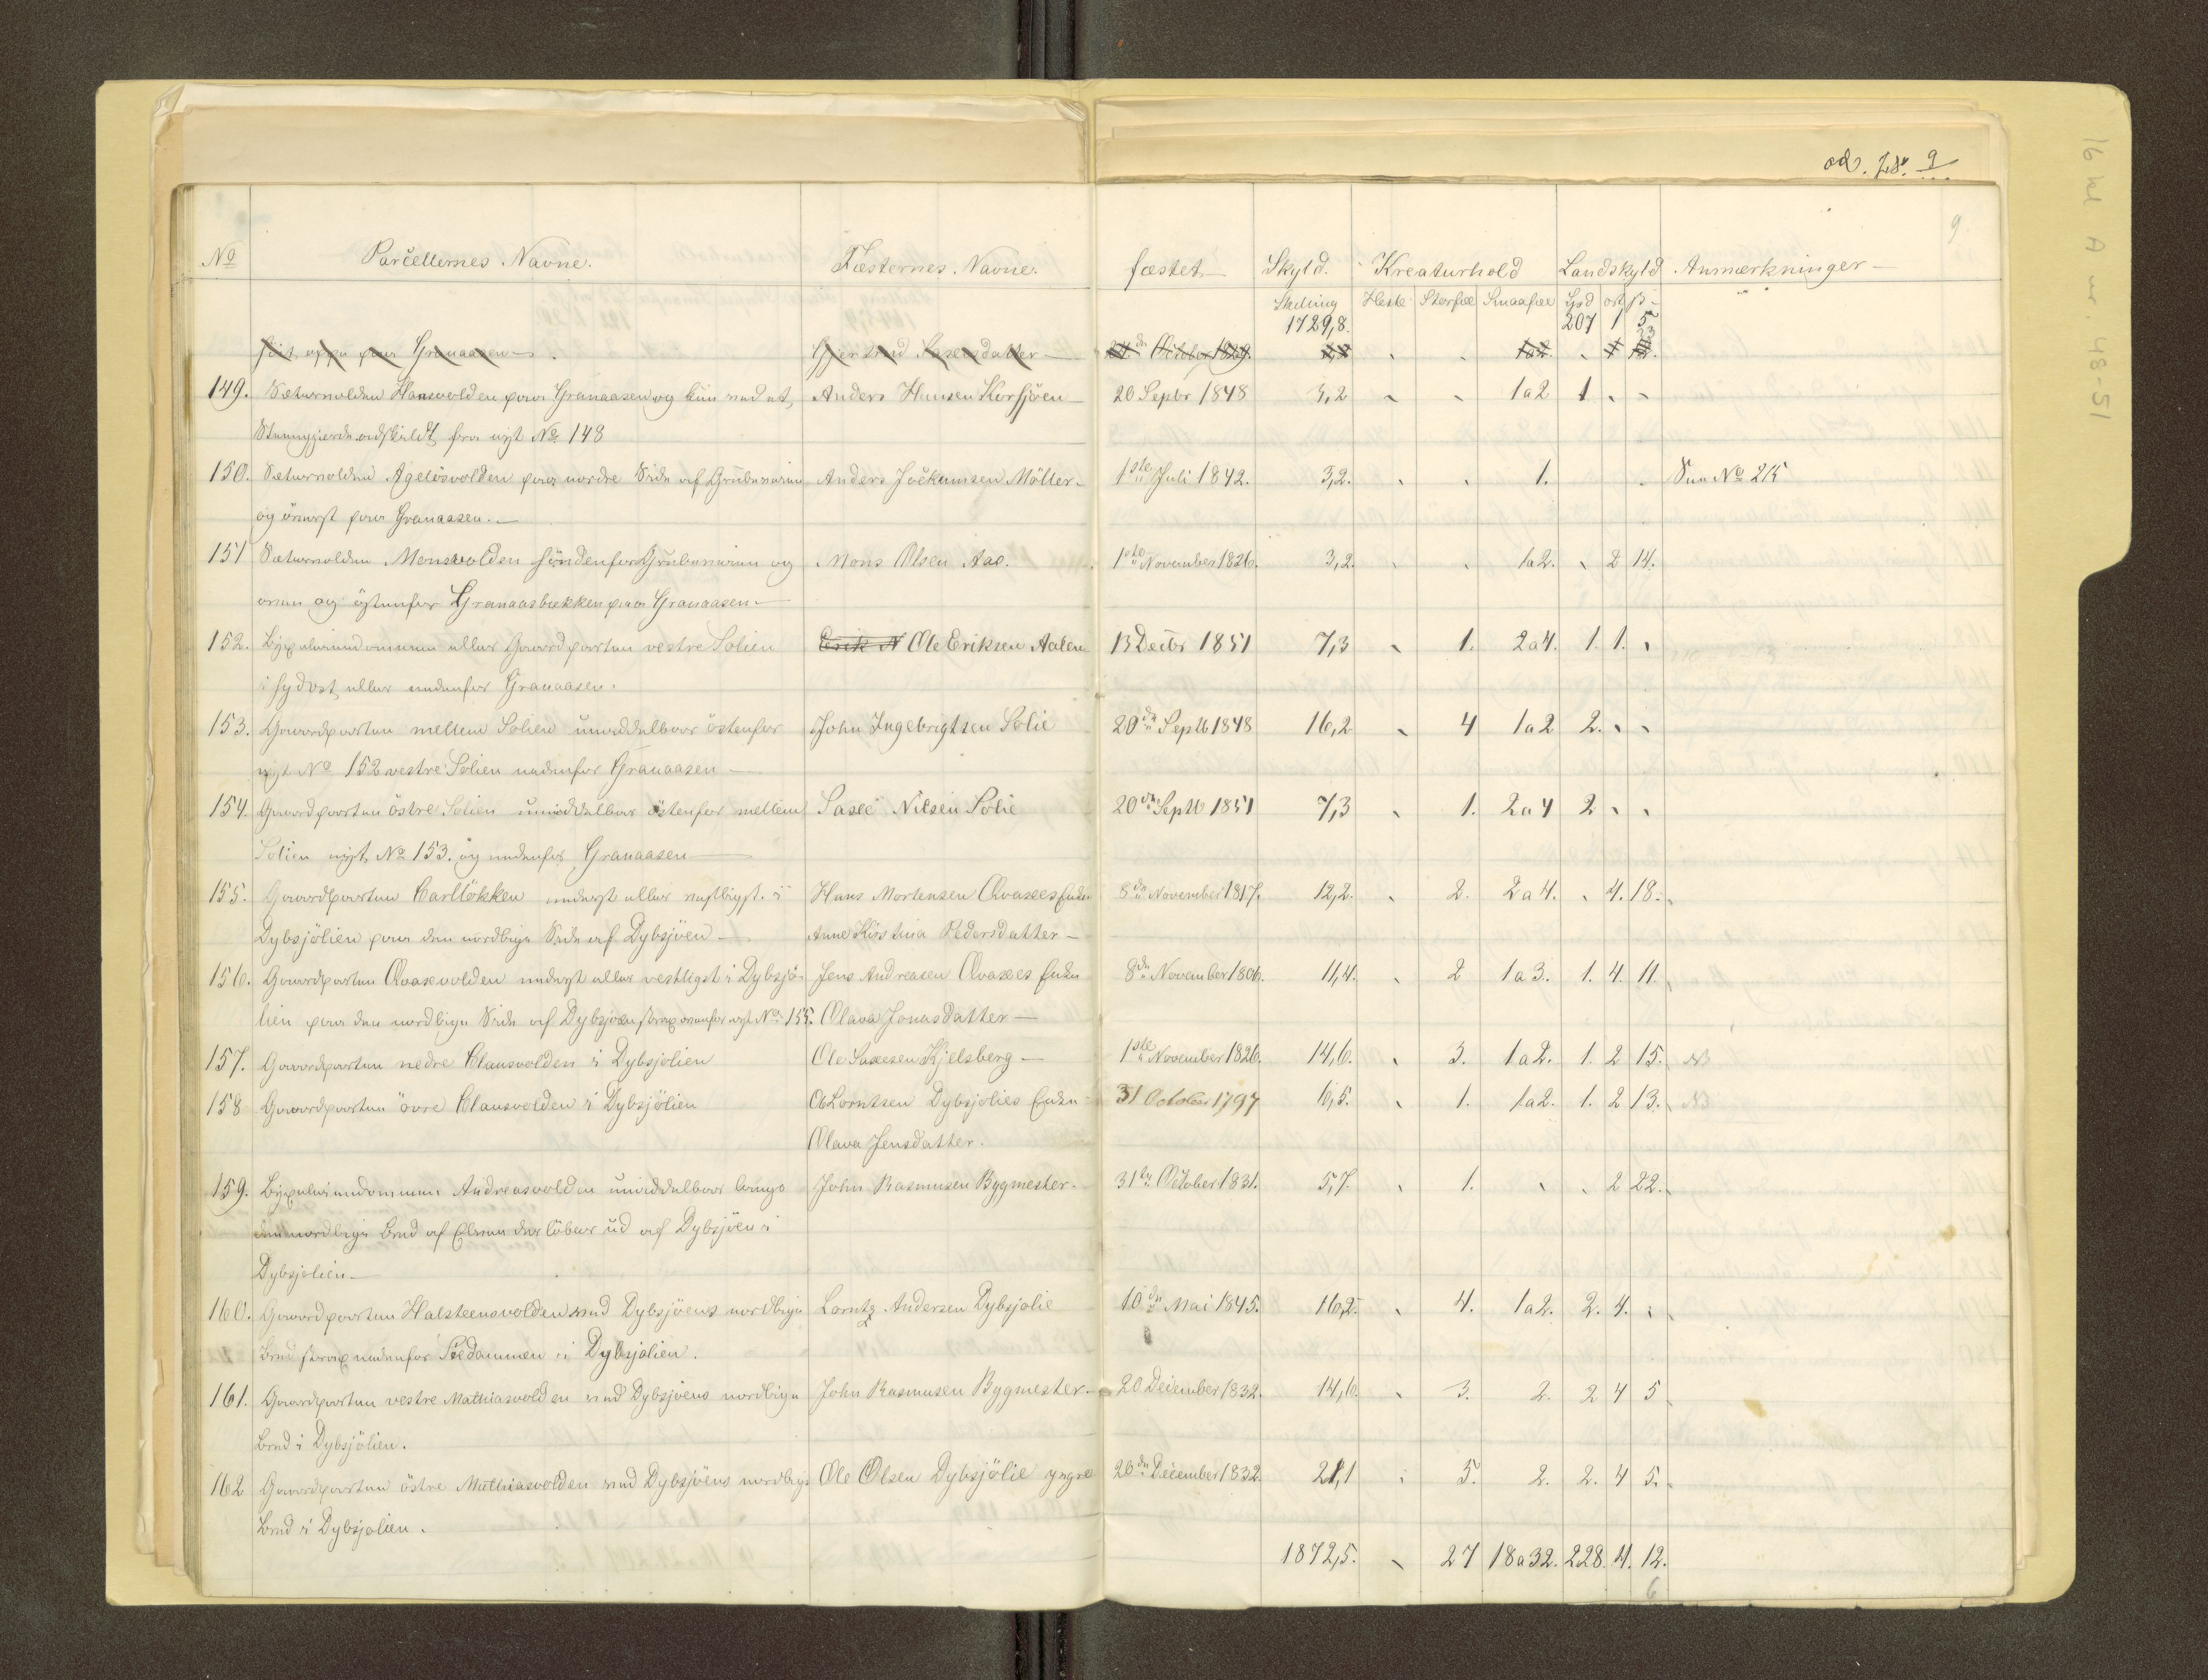 9
16 A nr. 48-51
9
No Parcellernes Navne. Fæsternes Navne. fæstet Skyld. Kreaturhold Landskyld Anmærkninger
Skilling Heste Storfæ Smaafæ Spd ort ß
1729,8. 207 1 5
høit oppe paa Granaasen Gjertrud Saxesdatter October 1829 23
149. Sætervolden Hansvolden paa Granaasen og kun ved et Anders Hansen Korsjöen 20 Septbr 1848 3,2 1 a 2 1
Steengjerde adskildt fra nyt No 148
150. Sætervolden Ageløsvolden paa nordre Side af Grubeveien Anders Jockumsen Möller 1ste Juli 1842. 3,2. 1. See No 215
og överst paa Granaasen.
151 Sætervolden Monsvolden söndenfor Grubeveien og Mons Olsen Aas. 1ste November 1826. 3,2. 1a2. 2 14.
oven og östenfor Granaasbækken paa Granaasen
152. eller Gaardparten vestre Solien Erik N Ole Eriksen Aalen 13 Decbr 1851 7,3 1. 2a4. 1. 1.
i sydost eller nedenfor Granaasen.
153. Gaardparten mellem Solien umiddelbar östenfor John Ingebrigtsen Solie 20de Septb 1848 16,2 4 1a2 2.
nyt No 152 vestre Solien nedenfor Granaasen
154. Gaardparten östre Solien umiddelbar östenfor mellem Saxe Nilsen Solie 20de Septb 1851 7,3 1. 2a4 2
Solien nyt No 153. og nedenfor Granaasen
155. Gaardparten Carllökken nederst eller vestligst i Hans Mortensen Aasxes Enke 8de November 1817. 12,2. 2. 2a4. 4. 18.
Dybsjölien paa den nordlige Side af Dybsjöen Anne Kirstina Pedersdatter
156. Gaardparten nederst eller vestligst i Dybsjö- Jens Andreasen Enke 8de November 1806. 11,4. 2 1a3. 1. 4. 11.
lien paa den nordlige Side af Dybsjöen strax ovenfor nyt No 155. Olava Jonasdatter
157. Gaardparten nedre Clausvolden i Dybsjölien Ole Saxesen Kjelsberg 1ste November 1826. 14,6. 3. 1a2. 1. 2 15. NB
158 Gaardparten övre Clausvolden i Dybsjölien Ol Lorntsen Dybsjölies Enke 31 October 1797 6,5. 1. 1a2. 1. 2 13. NB
Olava Jensdatter.
159. Andreasvolden umiddelbar langs John Rasmusen Bygmester. 31te October 1831. 5,7. 1. 2 22.
den nordlige Bred af Elven der löber ud af Dybsjöen i
Dybsjölien
160. Gaardparten Halsteensvolden ved Dybsjöens nordlige Lorntz Andersen Dybsjölie 10de Mai 1845. 16,2. 4. 1a2. 2. 4.
Bred strax nedenfor Dammen i Dybsjölien.
161. Gaardparten vestre Mathiasvolden ved Dybsjöens nordlige John Rasmusen Bygmester 20 December 1832. 14,6. 3. 2. 2 4 5
Bred i Dybsjölien.
162 Gaardparten östre Mathiasvolden ved Dybsjöens nordlige Ole Olsen Dybsjölie yngre 20de December 1832 21,1 5. 2. 2. 4 5.
Bred i Dybsjölien.
1872,5. 27 18a32. 228. 4. 12.
6